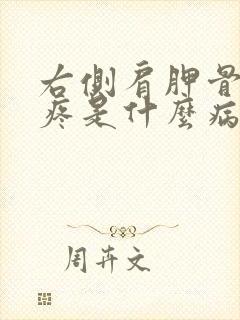 右側肩胛骨
疼是什麼病
周卉文